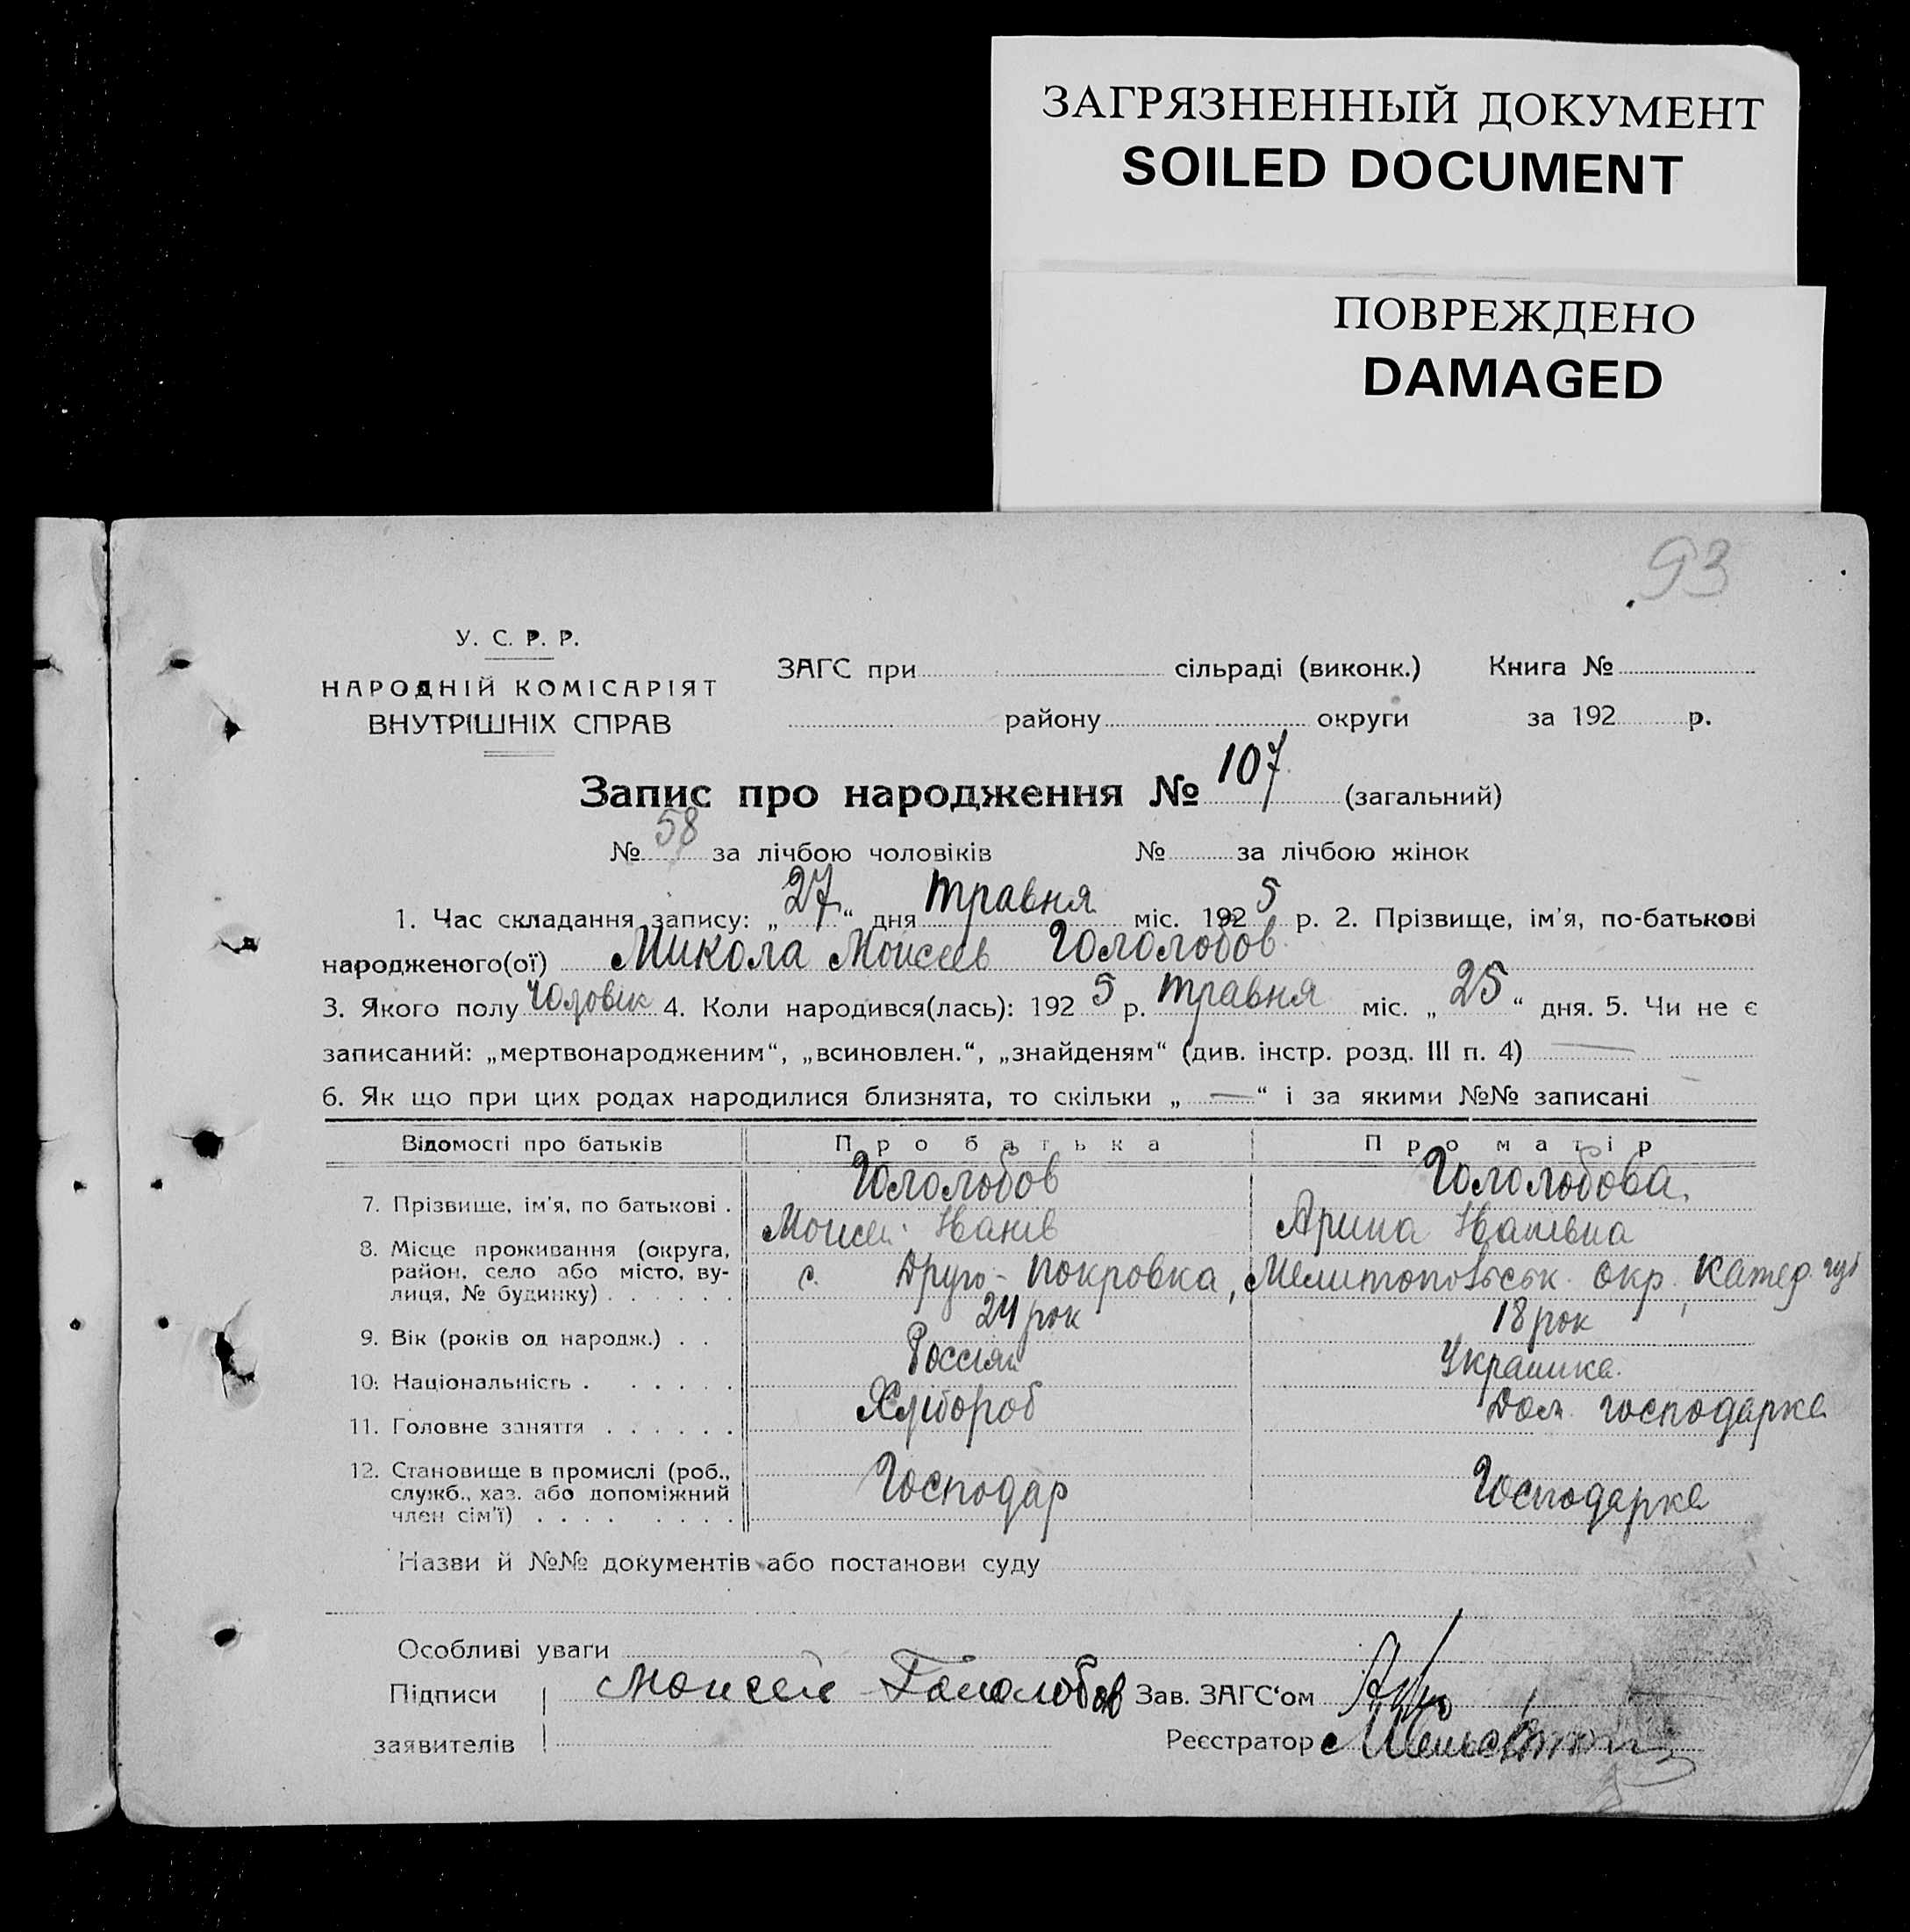 ЗАГРЯЗНЕННЫЙ ДОКУМЕНТ
SOILED DOCUMENT
ПОВРЕЖДЕНО
DAMAGED
93
У. С. Р. Р.
НАРОДНІЙ КОМІСАРІЯТ
ВНУТРІШНІХ СПРАВ
ЗАГС при сільраді (виконк.) Книга №
району округи за 192 р.
Запис про народження № 107 (загальний)
№ 58 за лічбою чоловіків № за лічбою жінок
1. Час складання запису: „27“ дня травня міс. 1925 р. 2. Прізвище, ім'я, по-батькові
народженого(ої) Микола Моисеев Гололобов
3. Якого полу Чоловік 4. Коли народився(лась): 1925 р. травня міс. „25“ дня. 5. Чи не є
записаний: „мертвонародженим“, „всиновлен.“, „знайденям“ (див. інстр. розд. III п. 4) —
6. Як що при цих родах народилися близнята, то скільки „—“ і за якими №№ записані
Відомості про батьків Про батька Про матір
Гололобов Гололобова
7. Прізвище, ім'я, по батькові . Моисей Іванів Арина Іванівна
8. Місце проживання (округа,
район, село або місто, ву-
лиця, № будинку) . . . . . . с. Друго-Покровка, Мелитопольськ. окр. Катер. губ
9. Вік (років од народж.) . . 24 рок 18 рок
10. Національність . . . . . . Россіян Українка
11. Головне заняття . . . . . . Хлібороб Дом. господарка
12. Становище в промислі (роб.,
служб., хаз. або допоміжний
член сім'ї) . . . . . . . . Господар Господарка
Назви й №№ документів або постанови суду
Особливі уваги
Підписи Моисей Гололобов Зав. ЗАГС'ом
заявителів Реєстратор